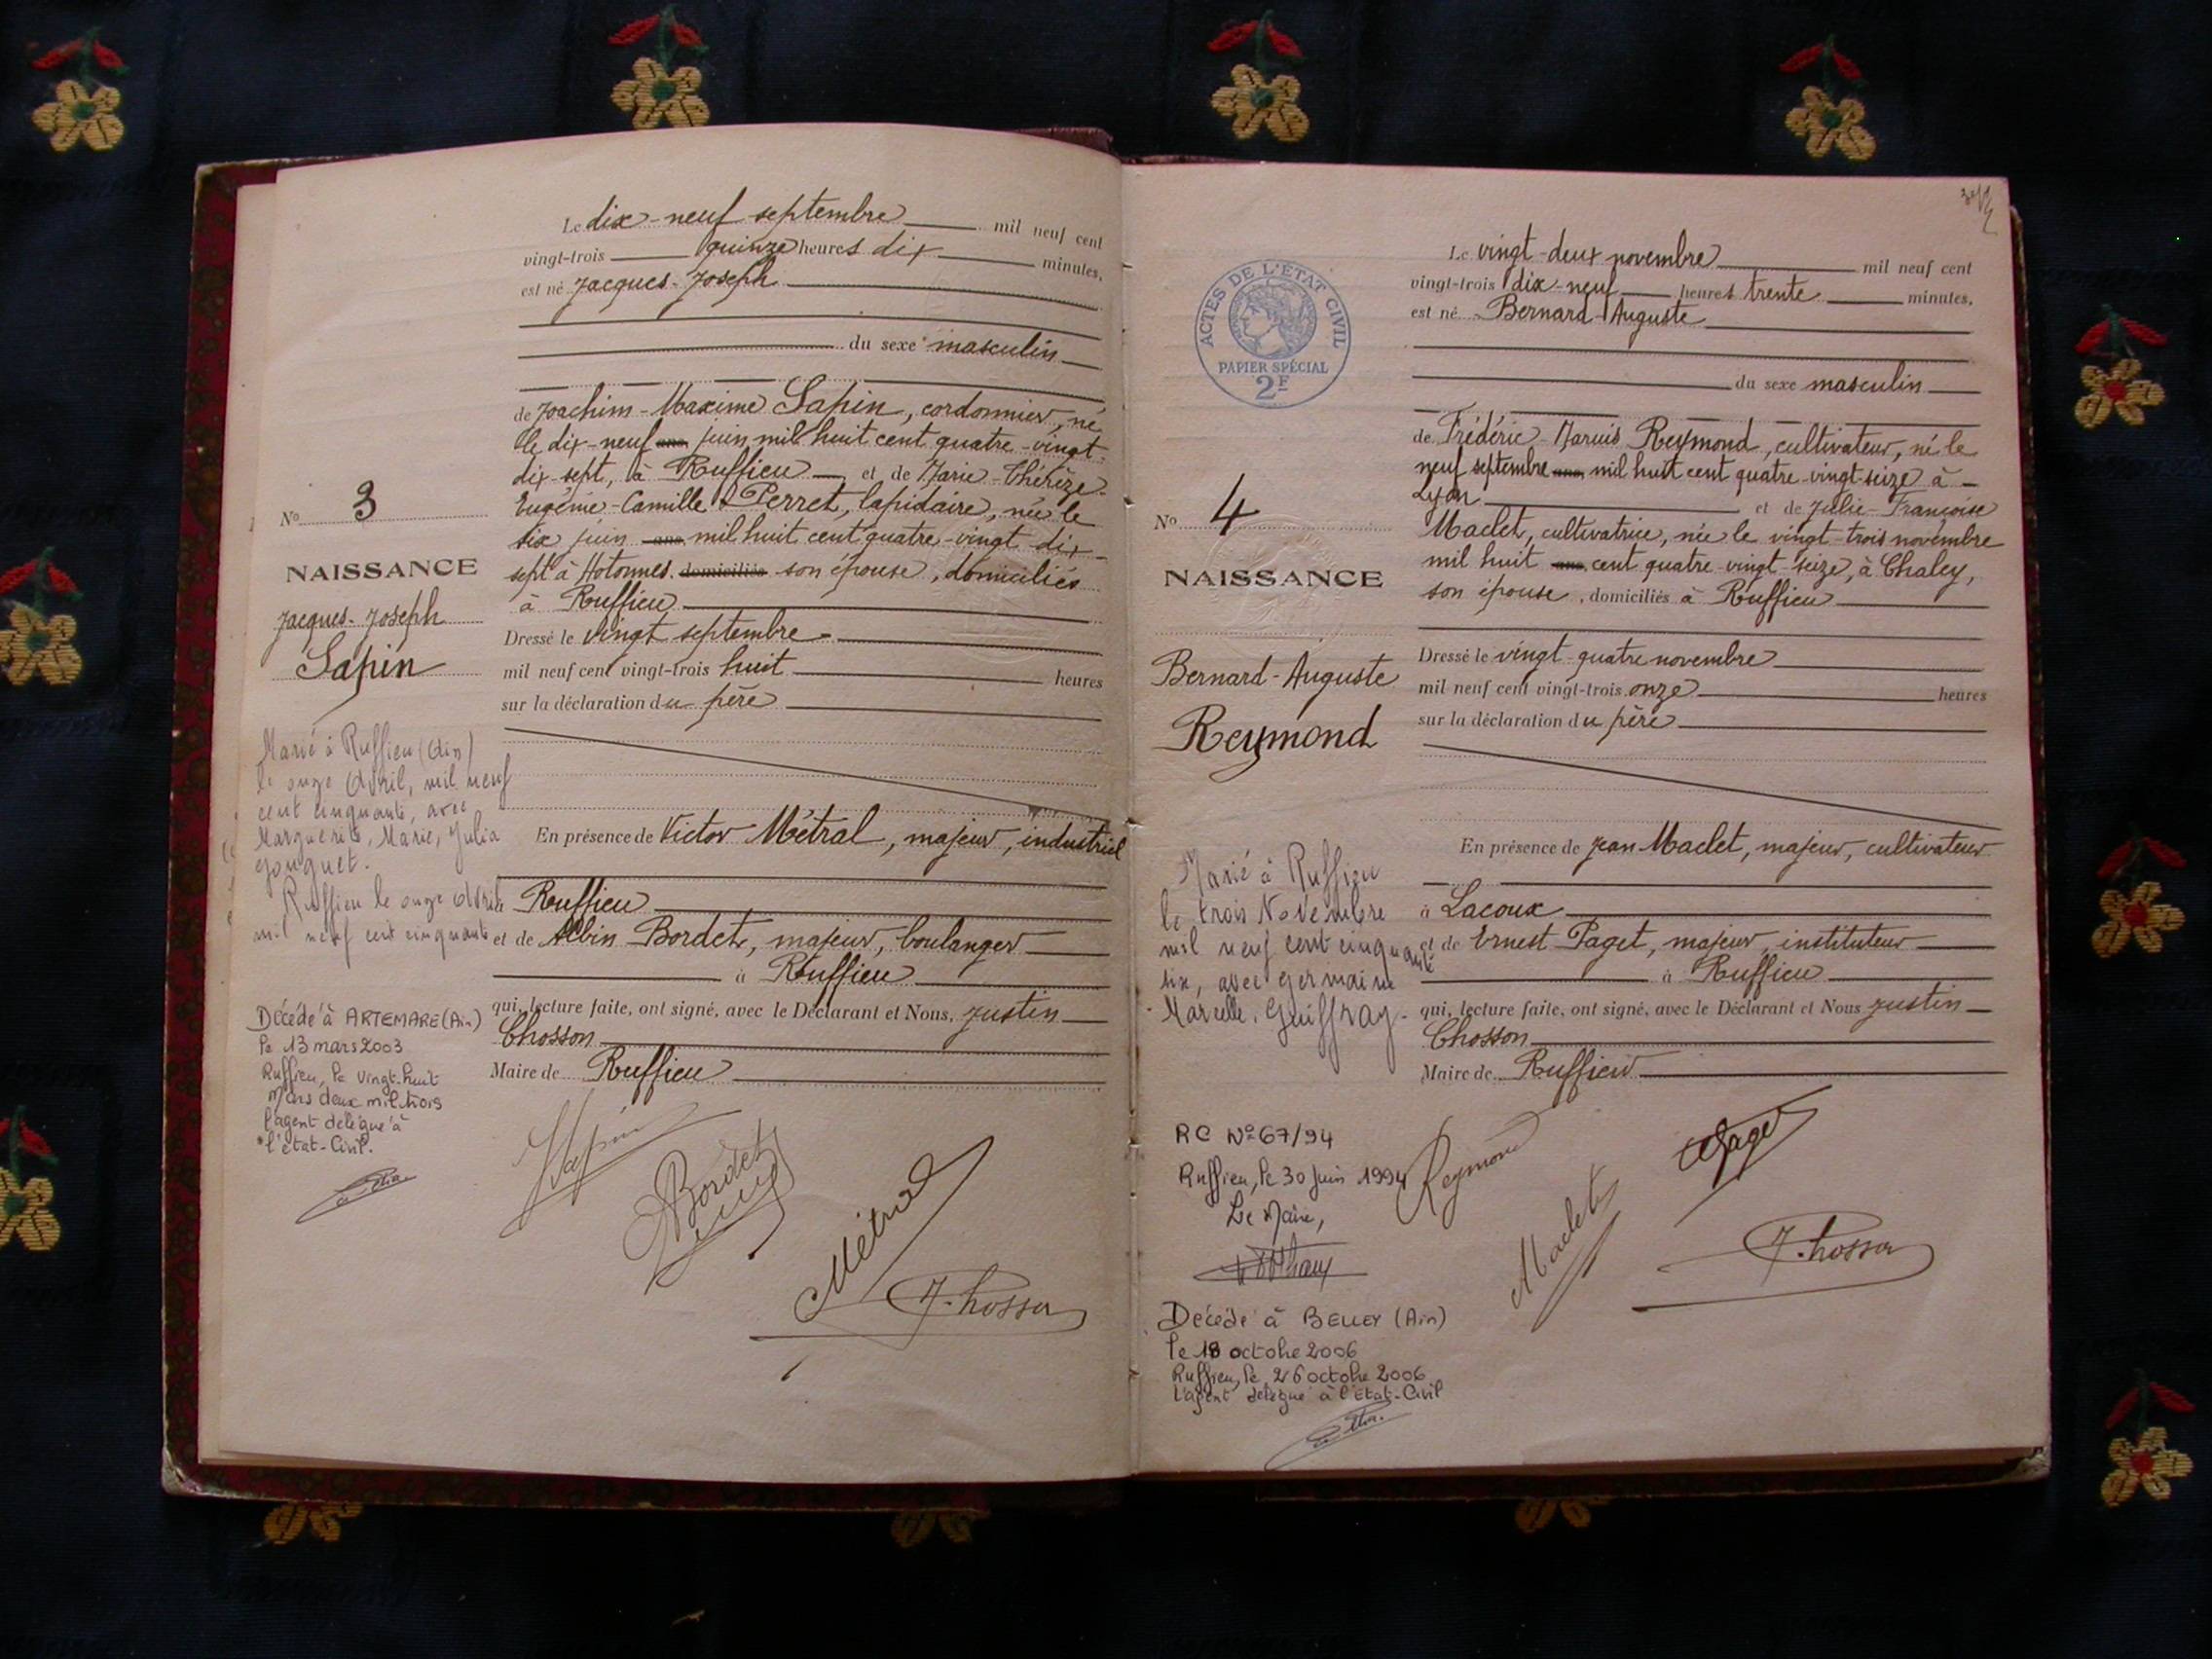 Le dix-neuf septembre mil neuf cent
vingt-trois quinze heures dix minutes,
est né Jacques-Joseph
du sexe masculin
de Joachim-Maxime Sapin, cordonnier, né
le dix-neuf ans juin mil huit cent quatre-vingt-
dix-sept, à Ruffieu et de Marie-Thérèze-
Eugénie-Camille Perret, lapidaire, née le
six juin ans mil huit cent quatre-vingt dix-
sept à Hotonnes. domiciliés son épouse, domiciliés
à Ruffieu
Dressé le vingt septembre
mil neuf cent vingt-trois huit heures
sur la déclaration du père
En présence de Victor Métral, majeur, industriel
Ruffieu
et de Albin Bordet, majeur, boulanger
à Ruffieu
qui, lecture faite, ont signé, avec le Déclarant et Nous, Justin
Chosson
Maire de Ruffieu
No 3
NAISSANCE
Jacques-Joseph
Sapin
Marié à Ruffieu (Ain)
le onze Avril, mil neuf
cent cinquante, avec
Marguerite, Marie, Julia
Gouguet.
Ruffieu le onze Avril
mil neuf cent cinquante
Décédé à ARTEMARE (Ain)
le 13 mars 2003
Ruffieu, le vingt-huit
Mars deux mil trois
l'agent délégué à
l'état-Civil.
Sapin
Bordet
Métral
J. Chosson
Le vingt-deux novembre mil neuf cent
vingt-trois dix-neuf heures trente minutes,
est né Bernard-Auguste
du sexe masculin
de Frédéric-Marius Reymond, cultivateur, né le
neuf septembre ans mil huit cent quatre-vingt-seize à
Lyon et de Julie-Françoise
Maclet, cultivatrice, née le vingt-trois novembre
mil huit ans cent quatre-vingt-seize, à Chaley,
son épouse, domiciliés à Ruffieu
Dressé le vingt-quatre novembre
mil neuf cent vingt-trois onze heures
sur la déclaration du père
En présence de Jean Maclet, majeur, cultivateur
à Lacoux
et de Ernest Paget, majeur, instituteur
à Ruffieu
qui, lecture faite, ont signé, avec le Déclarant et Nous Justin
Chosson
Maire de Ruffieu
ACTES DE L'ÉTAT CIVIL
PAPIER SPÉCIAL
2F
No 4
NAISSANCE
Bernard-Auguste
Reymond
Marié à Ruffieu
le trois Novembre
mil neuf cent cinquante
six, avec Germaine
Marcelle, Guiffray.
RC No 67/94
Ruffieu, le 30 juin 1994
Le Maire,
Décédé à BELLEY (Ain)
le 18 octobre 2006
Ruffieu, le 26 octobre 2006
L'agent délégué à l'état-Civil
Reymond
Paget
Maclet
J. Chosson